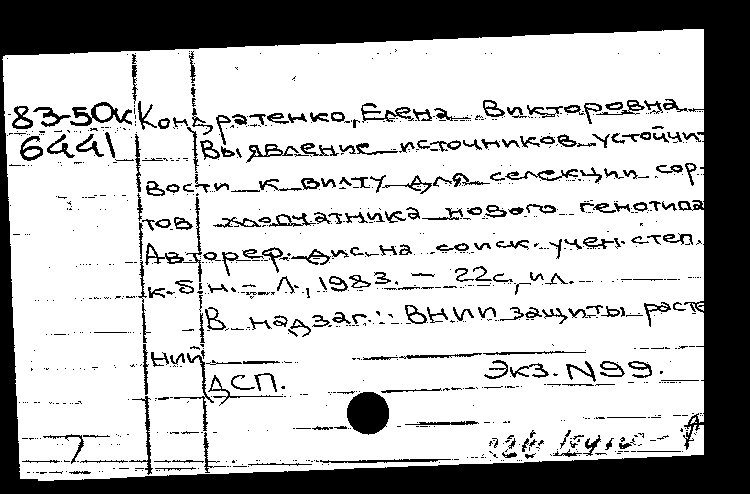 83-50к Кондратенко, Елена Викторовна
6441 Выявление источников устойчи-
вости к вилту для селекции сор-
тов хлопчатника нового генотипа
Автореф. дис. на соиск. учен. степ.
к.б.н. - Л., 1983. - 22с, ил.
В надзаг.: ВНИИ защиты расте
ний.
ДСП. Экз. N99.